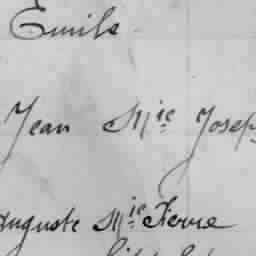 Emile
Jean Mie Joseph
Auguste Mie Pierre